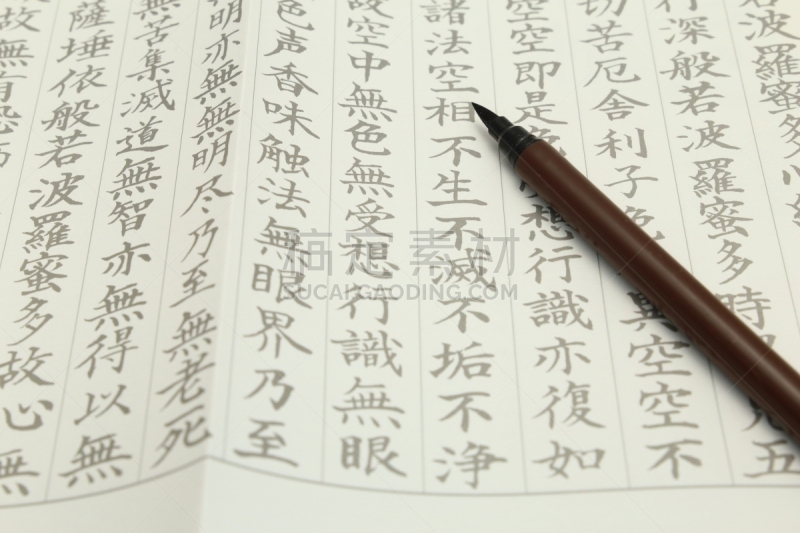 若波羅蜜多心
行深般若波羅蜜多時見五
切苦厄舎利子色異空空不
空空即是色受想行識亦復如
諸法空相不生不滅不垢不浄
故空中無色無受想行識無眼
色声香味触法無眼界乃至
明亦無無明尽乃至無老死
無苦集滅道無智亦無得以無
薩埵依般若波羅蜜多故心無
故無有恐
搞定素材
SUCAIGAODING.COM